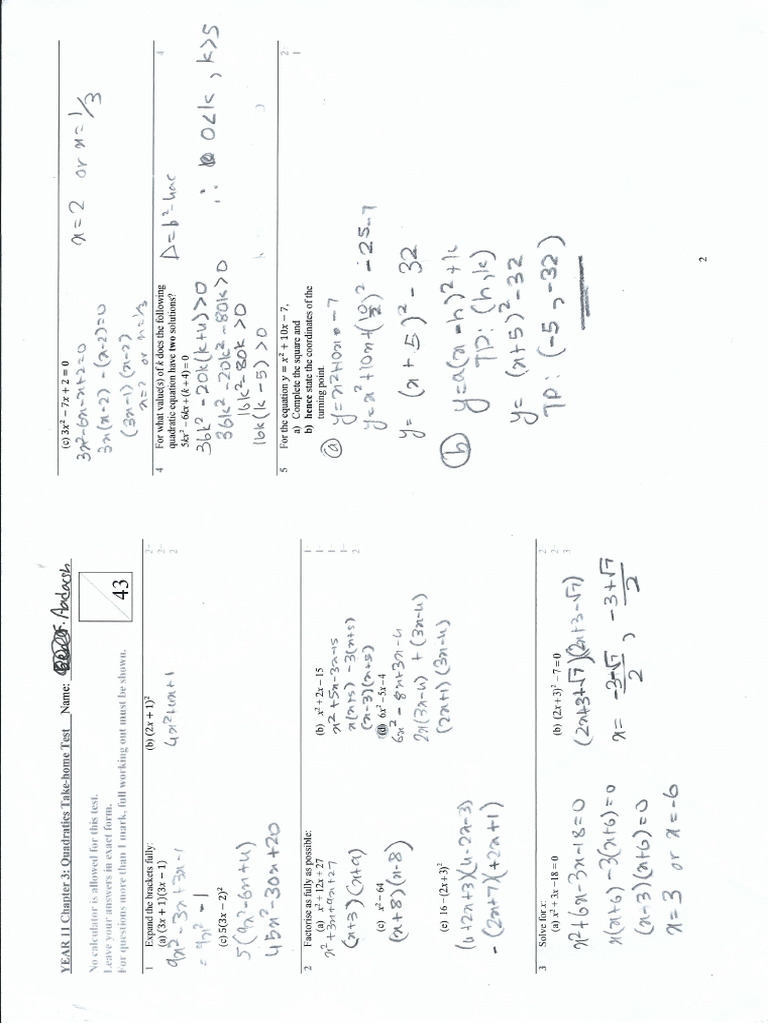 YEAR 11 Chapter 3: Quadratics Take-home Test Name: Aadarsh
No calculator is allowed for this test.
Leave your answers in exact form.
For questions more than 1 mark, full working out must be shown.
43
1 Expand the brackets fully:
(a) (3x + 1)(3x − 1)
9x² − 3x + 3x − 1
= 9x² − 1
(b) (2x + 1)²
4x²+4x+1
2
2
2
(c) 5(3x − 2)²
5(9x²−6x+4)
45x²−30x+20
2 Factorise as fully as possible:
(a) x² + 12x + 27
x²+3x+9x+27
(x+3)(x+9)
(b) x² + 2x − 15
x²+5x−3x−15
x(x+5) −3(x+5)
(x−3)(x+5)
1
1
1
1
2
(c) x² − 64
(x+8)(x−8)
(d) 6x² − 5x − 4
6x² − 8x+3x−4
2x(3x−4) + (3x−4)
(2x+1)(3x−4)
(e) 16 − (2x+3)²
(4+2x+3)(4−2x−3)
− (2x+7)(+2x+1)
3 Solve for x:
(a) x² + 3x − 18 = 0
x²+6x−3x−18=0
x(x+6) −3(x+6)=0
(x−3)(x+6)=0
x=3 or x=−6
(b) (2x+3)² − 7 = 0
(2x+3+√7)(2x+3−√7)
x= −3−√7/2 , −3+√7/2
2
2
3
(c) 3x² − 7x + 2 = 0
3x²−6x−x+2=0
3x(x−2) − (x−2)=0
(3x−1)(x−2)
x=2 or x=1/3
x=2 or x=1/3
4 For what value(s) of k does the following
quadratic equation have two solutions?
5kx² − 6kx + (k + 4) = 0
4
Δ=b²−4ac
36k² −20k(k+4)>0
36k² −20k² −80k>0
16k²−80k >0
16k(k −5) >0
∴ 0<k , k>5
5 For the equation y = x² + 10x − 7,
a) Complete the square and
b) hence state the coordinates of the
turning point.
2
1
(a) y=x²+10x−7
y=x²+10x+(10/2)² −25−7
y= (x+5)² −32
(b) y=a(x−h)²+k
TP: (h,k)
y= (x+5)²−32
TP: (−5, −32)
2